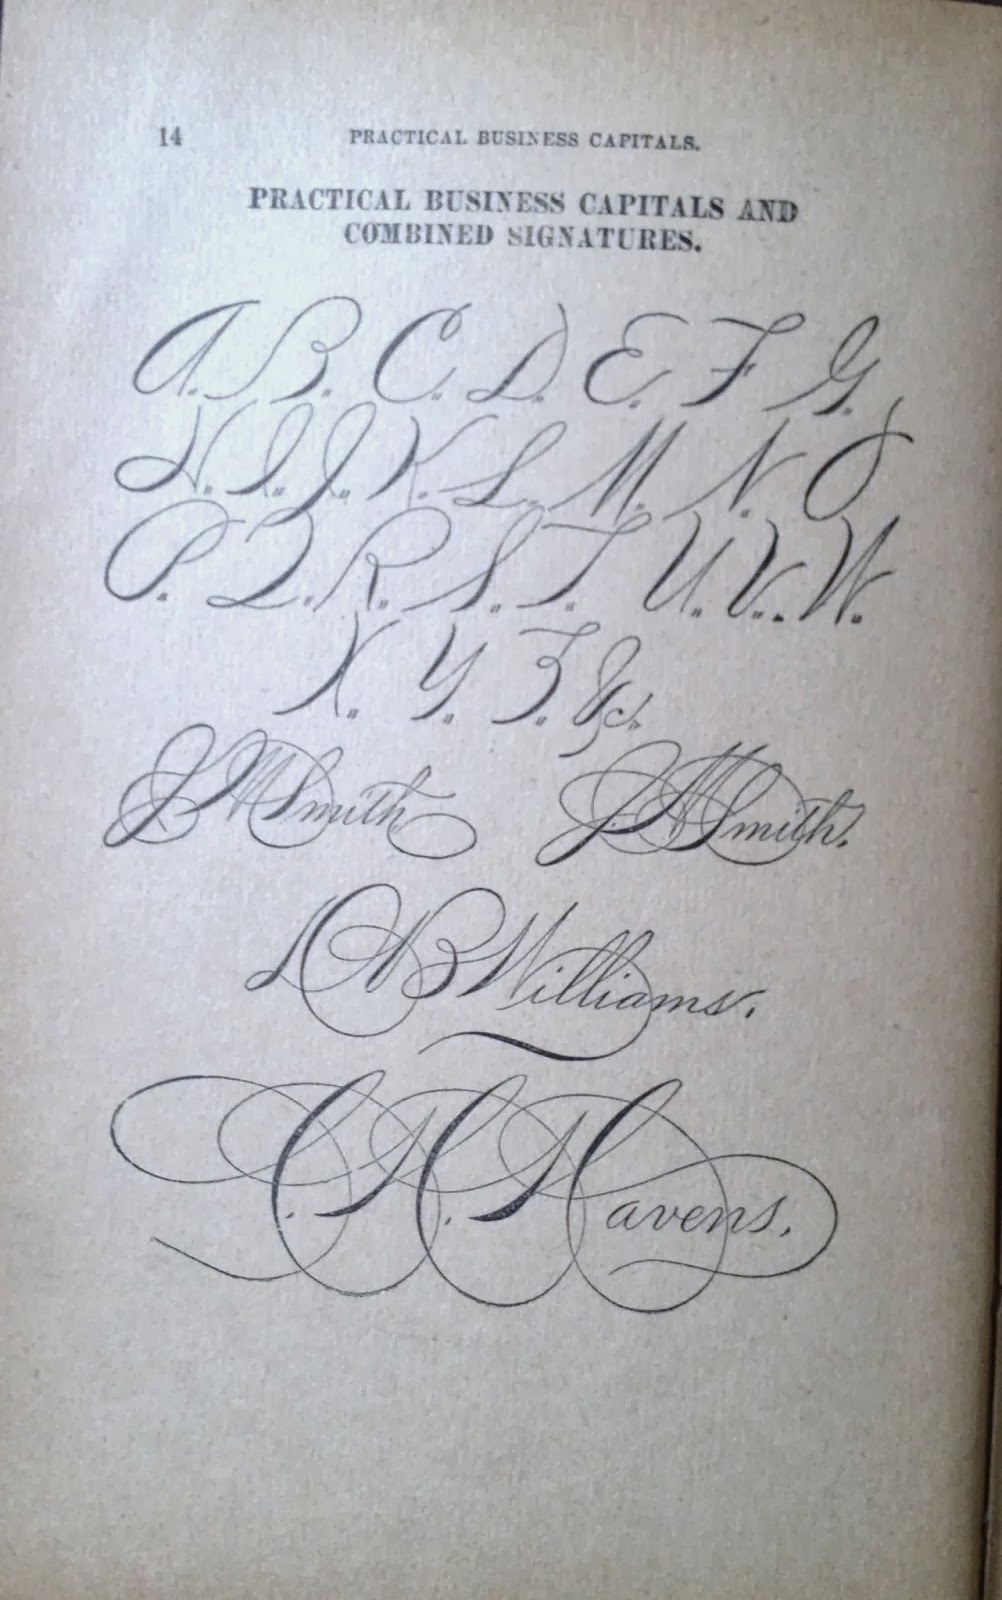 14 PRACTICAL BUSINESS CAPITALS.
PRACTICAL BUSINESS CAPITALS AND
COMBINED SIGNATURES.
A. B. C. D. E. F G.
H. I. J. K. L. M. N. O
P. Q. R. S. T. U. V. W.
X. Y. Z. &c.
J M Smith J. M Smith.
D B Williams.
C. H. Havens.